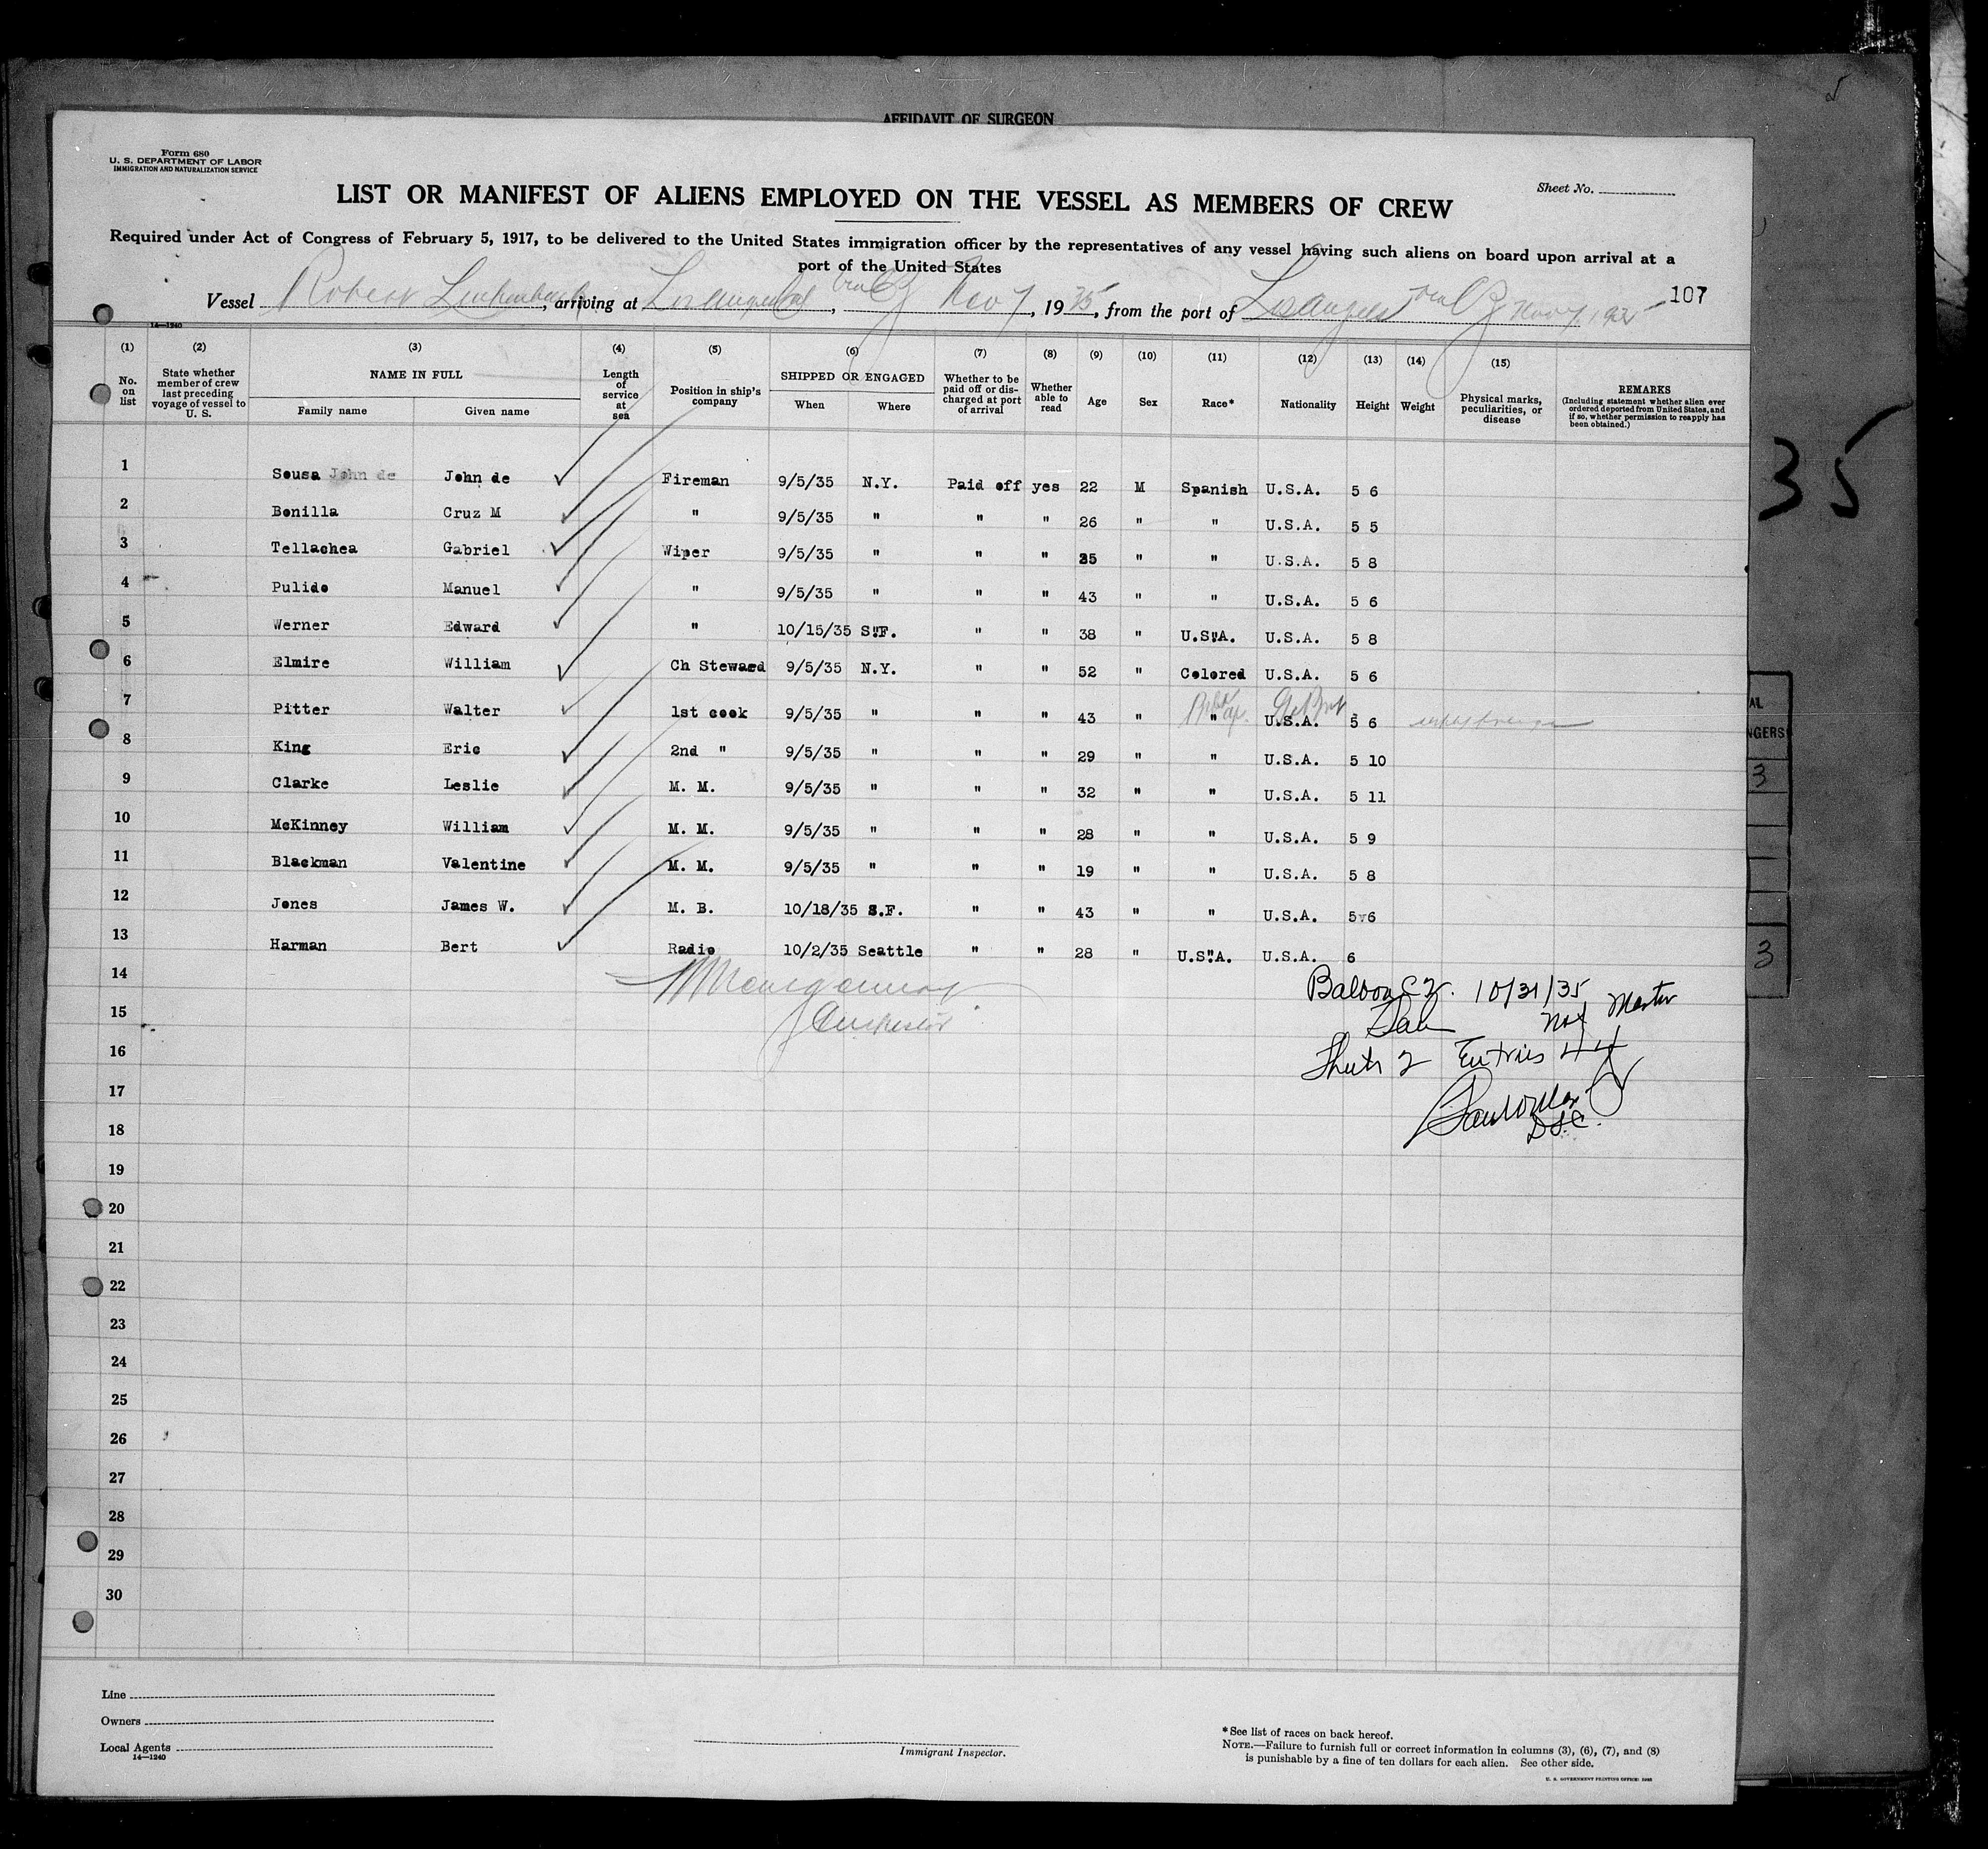 5
AFFIDAVIT OF SURGEON
Form 680
U. S. DEPARTMENT OF LABOR
IMMIGRATION AND NATURALIZATION SERVICE
Sheet No.
LIST OR MANIFEST OF ALIENS EMPLOYED ON THE VESSEL AS MEMBERS OF CREW
Required under Act of Congress of February 5, 1917, to be delivered to the United States immigration officer by the representatives of any vessel having such aliens on board upon arrival at a
port of the United States
107
Vessel Robert Luckenbach, arriving at Los Angeles Cal, Nov 7, 1935, from the port of Los Angeles Nov 7, 1935
14—1240
(1) (2) (3) (4) (5) (6) (7) (8) (9) (10) (11) (12) (13) (14) (15)
No. on list State whether member of crew last preceding voyage of vessel to U. S. NAME IN FULL Family name Given name Length of service at sea Position in ship's company SHIPPED OR ENGAGED When Where Whether to be paid off or discharged at port of arrival Whether able to read Age Sex Race* Nationality Height Weight Physical marks, peculiarities, or disease REMARKS (Including statement whether alien ever ordered deported from United States, and if so, whether permission to reapply has been obtained.)
1 Sousa John de John de Fireman 9/5/35 N.Y. Paid off yes 22 M Spanish U.S.A. 5 6
2 Bonilla Cruz M " 9/5/35 " " " 26 " " U.S.A. 5 5
3 Tellachea Gabriel Wiper 9/5/35 " " " 35 " " U.S.A. 5 8
4 Pulido Manuel " 9/5/35 " " " 43 " " U.S.A. 5 6
5 Werner Edward " 10/15/35 S.F. " " 38 " U.S.A. U.S.A. 5 8
6 Elmire William Ch Steward 9/5/35 N.Y. " " 52 " Colored U.S.A. 5 6
7 Pitter Walter 1st cook 9/5/35 " " " 43 " " U.S.A. 5 6
8 King Eric 2nd " 9/5/35 " " " 29 " " U.S.A. 5 10
9 Clarke Leslie M. M. 9/5/35 " " " 32 " " U.S.A. 5 11
10 McKinney William M. M. 9/5/35 " " " 28 " " U.S.A. 5 9
11 Blackman Valentine M. M. 9/5/35 " " " 19 " " U.S.A. 5 8
12 Jones James W. M. B. 10/18/35 S.F. " " 43 " " U.S.A. 5 6
13 Harman Bert Radio 10/2/35 Seattle " " 28 " U.S.A. U.S.A. 6
14
Balboa C Z. 10/31/35
15
Master
16
Sheets 2 Entries 44
17
18
19
20
21
22
23
24
25
26
27
28
29
30
35
AL
NGERS
3
3
Line
Owners
Local Agents
14—1240
Immigrant Inspector.
*See list of races on back hereof.
NOTE.—Failure to furnish full or correct information in columns (3), (6), (7), and (8)
is punishable by a fine of ten dollars for each alien. See other side.